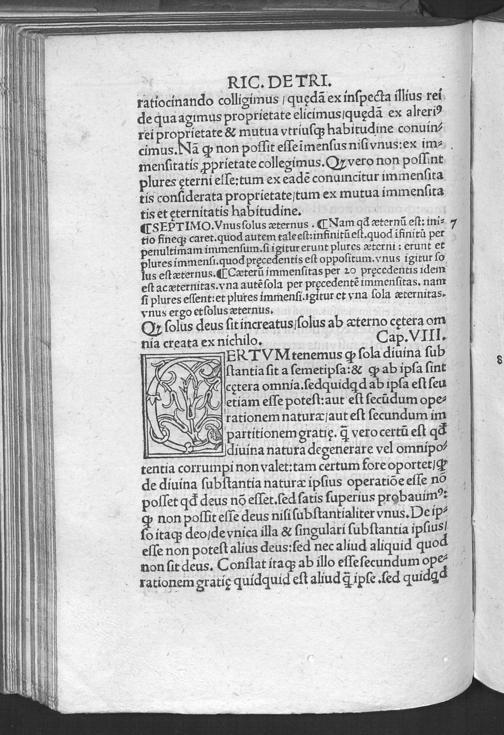 RIC. DE TRI.
ratiocinando colligimus / quędã ex inspecta illius rei
de qua agimus proprietate elicimus / quędã ex alteriꝰ
rei proprietate & mutua vtriusqꝫ habitudine conuin-
cimus. Nã ꝙ non possit esse ĩmensus nisi vnus: ex im-
mensitatis ꝓprietate collegimus. Qꝫ vero non possint
plures ęterni esse: tum ex eadẽ conuincitur immensita
tis considerata proprietate / tum ex mutua immensita
tis et ęternitatis habitudine.
¶SEPTIMO. Vnus solus æternus. ¶Nam qđ æternũ est: ini- 7
tio fineqꝫ caret. quod autem tale est: infinitũ est. quod ĩfinitũ per
penultimam immensum. si igitur erunt plures æterni: erunt et
plures immensi. quod pręcedentis est oppositum. vnus igitur so
lus est æternus. ¶Cæterũ immensitas per 20 pręcedentis idem
est ac æternitas. vna autẽ sola per pręcedentẽ immensitas. nam
si plures essent: et plures immensi. igitur et vna sola æternitas.
vnus ergo et solus æternus.
Qꝫ solus deus sit increatus / solus ab æterno cętera om
nia creata ex nichilo. Cap. VIII.
CERTVM tenemus ꝙ sola diuina sub
stantia sit a semetipsa: & ꝙ ab ipsa sint
cętera omnia. sed quidqđ ab ipsa est seu
etiam esse potest: aut est secũdum ope-
rationem naturæ / aut est secundum im
partitionem gratię. q̃ vero certũ est qđ
diuina natura degenerare vel omnipo-
tentia corrumpi non valet: tam certum fore oportet / ꝙ
de diuina substantia naturæ ipsius operatiõe esse nõ
posset qđ deus nõ esset. sed satis superius probauimꝰ:
ꝙ non possit esse deus nisi substantialiter vnus. De ip-
so itaqꝫ deo / de vnica illa & singulari substantia ipsius /
esse non potest alius deus: sed nec aliud aliquid quod
non sit deus. Constat itaqꝫ ab illo esse secundum ope-
rationem gratię quidquid est aliud q̃ ipse. sed quidqđ